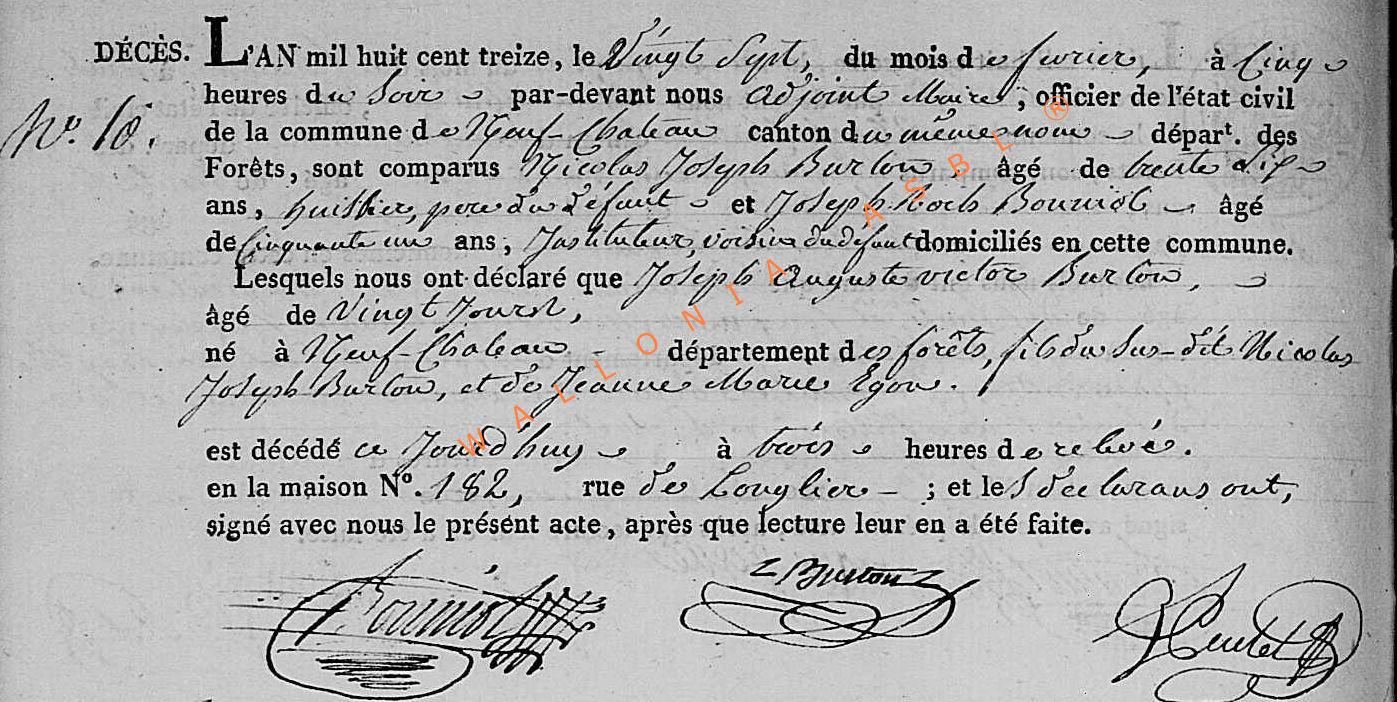 DÉCÈS. L'AN mil huit cent treize, le Vingt Sept, du mois de fevrier, à Cinq
heures du Soir par-devant nous adjoint Maire, officier de l'état civil
No. 10. de la commune de Neuf-Chateau canton du même nom départ. des
Forêts, sont comparus Nicolas Joseph Burton, âgé de trente Six
ans, huissier, pere du défunt et Joseph Roch Bouniol âgé
de Cinquante un ans, Instituteur, voisin du défunt domiciliés en cette commune.
Lesquels nous ont déclaré que Joseph Auguste victor Burton,
âgé de Vingt Jours,
né à Neuf-Chateau département des forêts, fils du Sus-dit Nicolas
Joseph Burton, et de Jeanne Marie Egon.
est décédé ce Jourd'huy à trois heures de relevé.
en la maison No. 182, rue de Longlier ; et les declarans ont,
signé avec nous le présent acte, après que lecture leur en a été faite.
Bouniol Burton
WALLONIA ASBL ®